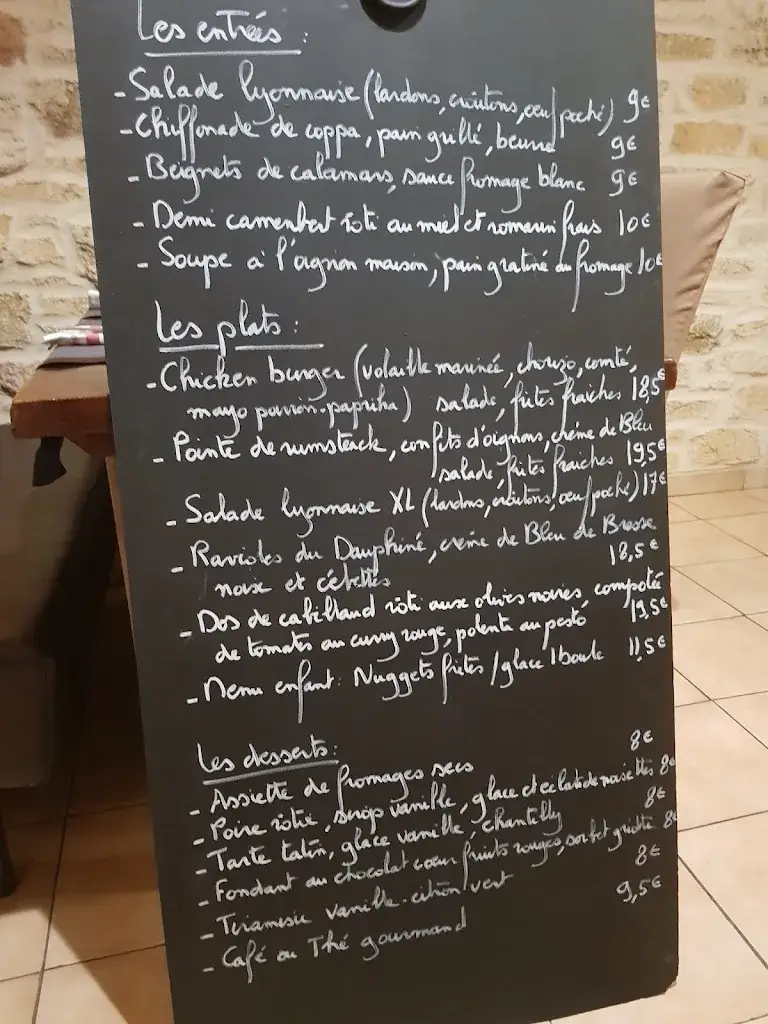 Les entrées :
- Salade lyonnaise (lardons, croûtons, oeuf poché) 9€
- Chiffonade de coppa, pain grillé, beurre 9€
- Beignets de calamars, sauce fromage blanc 9€
- Demi camembert rôti au miel et romarin frais 10€
- Soupe à l'oignon maison, pain gratiné au fromage 10€
Les plats :
- Chicken burger (volaille marinée, chorizo, comté,
mayo poivron-paprika) salade, frites fraiches 18,5€
- Pointe de rumsteack, confits d'oignons, crème de Bleu
salade, frites fraiches 19,5€
- Salade lyonnaise XL (lardons, croûtons, oeuf poché) 17€
- Ravioles du Dauphiné, crème de Bleu de Bresse
noix et cébettes 18,5€
- Dos de cabillaud rôti aux olives noires, compotée
de tomates au curry rouge, polenta au pesto 19,5€
- Menu enfant : Nuggets frites / glace 1 boule 11,5€
Les desserts :
- Assiette de fromages secs 8€
- Poire rôtie, sirop vanille, glace et éclats de noisettes 8€
- Tarte tatin, glace vanille, chantilly 8€
- Fondant au chocolat coeur fruits rouges, sorbet griotte 8€
- Tiramisu vanille-citron vert 8€
- Café ou Thé gourmand 9,5€